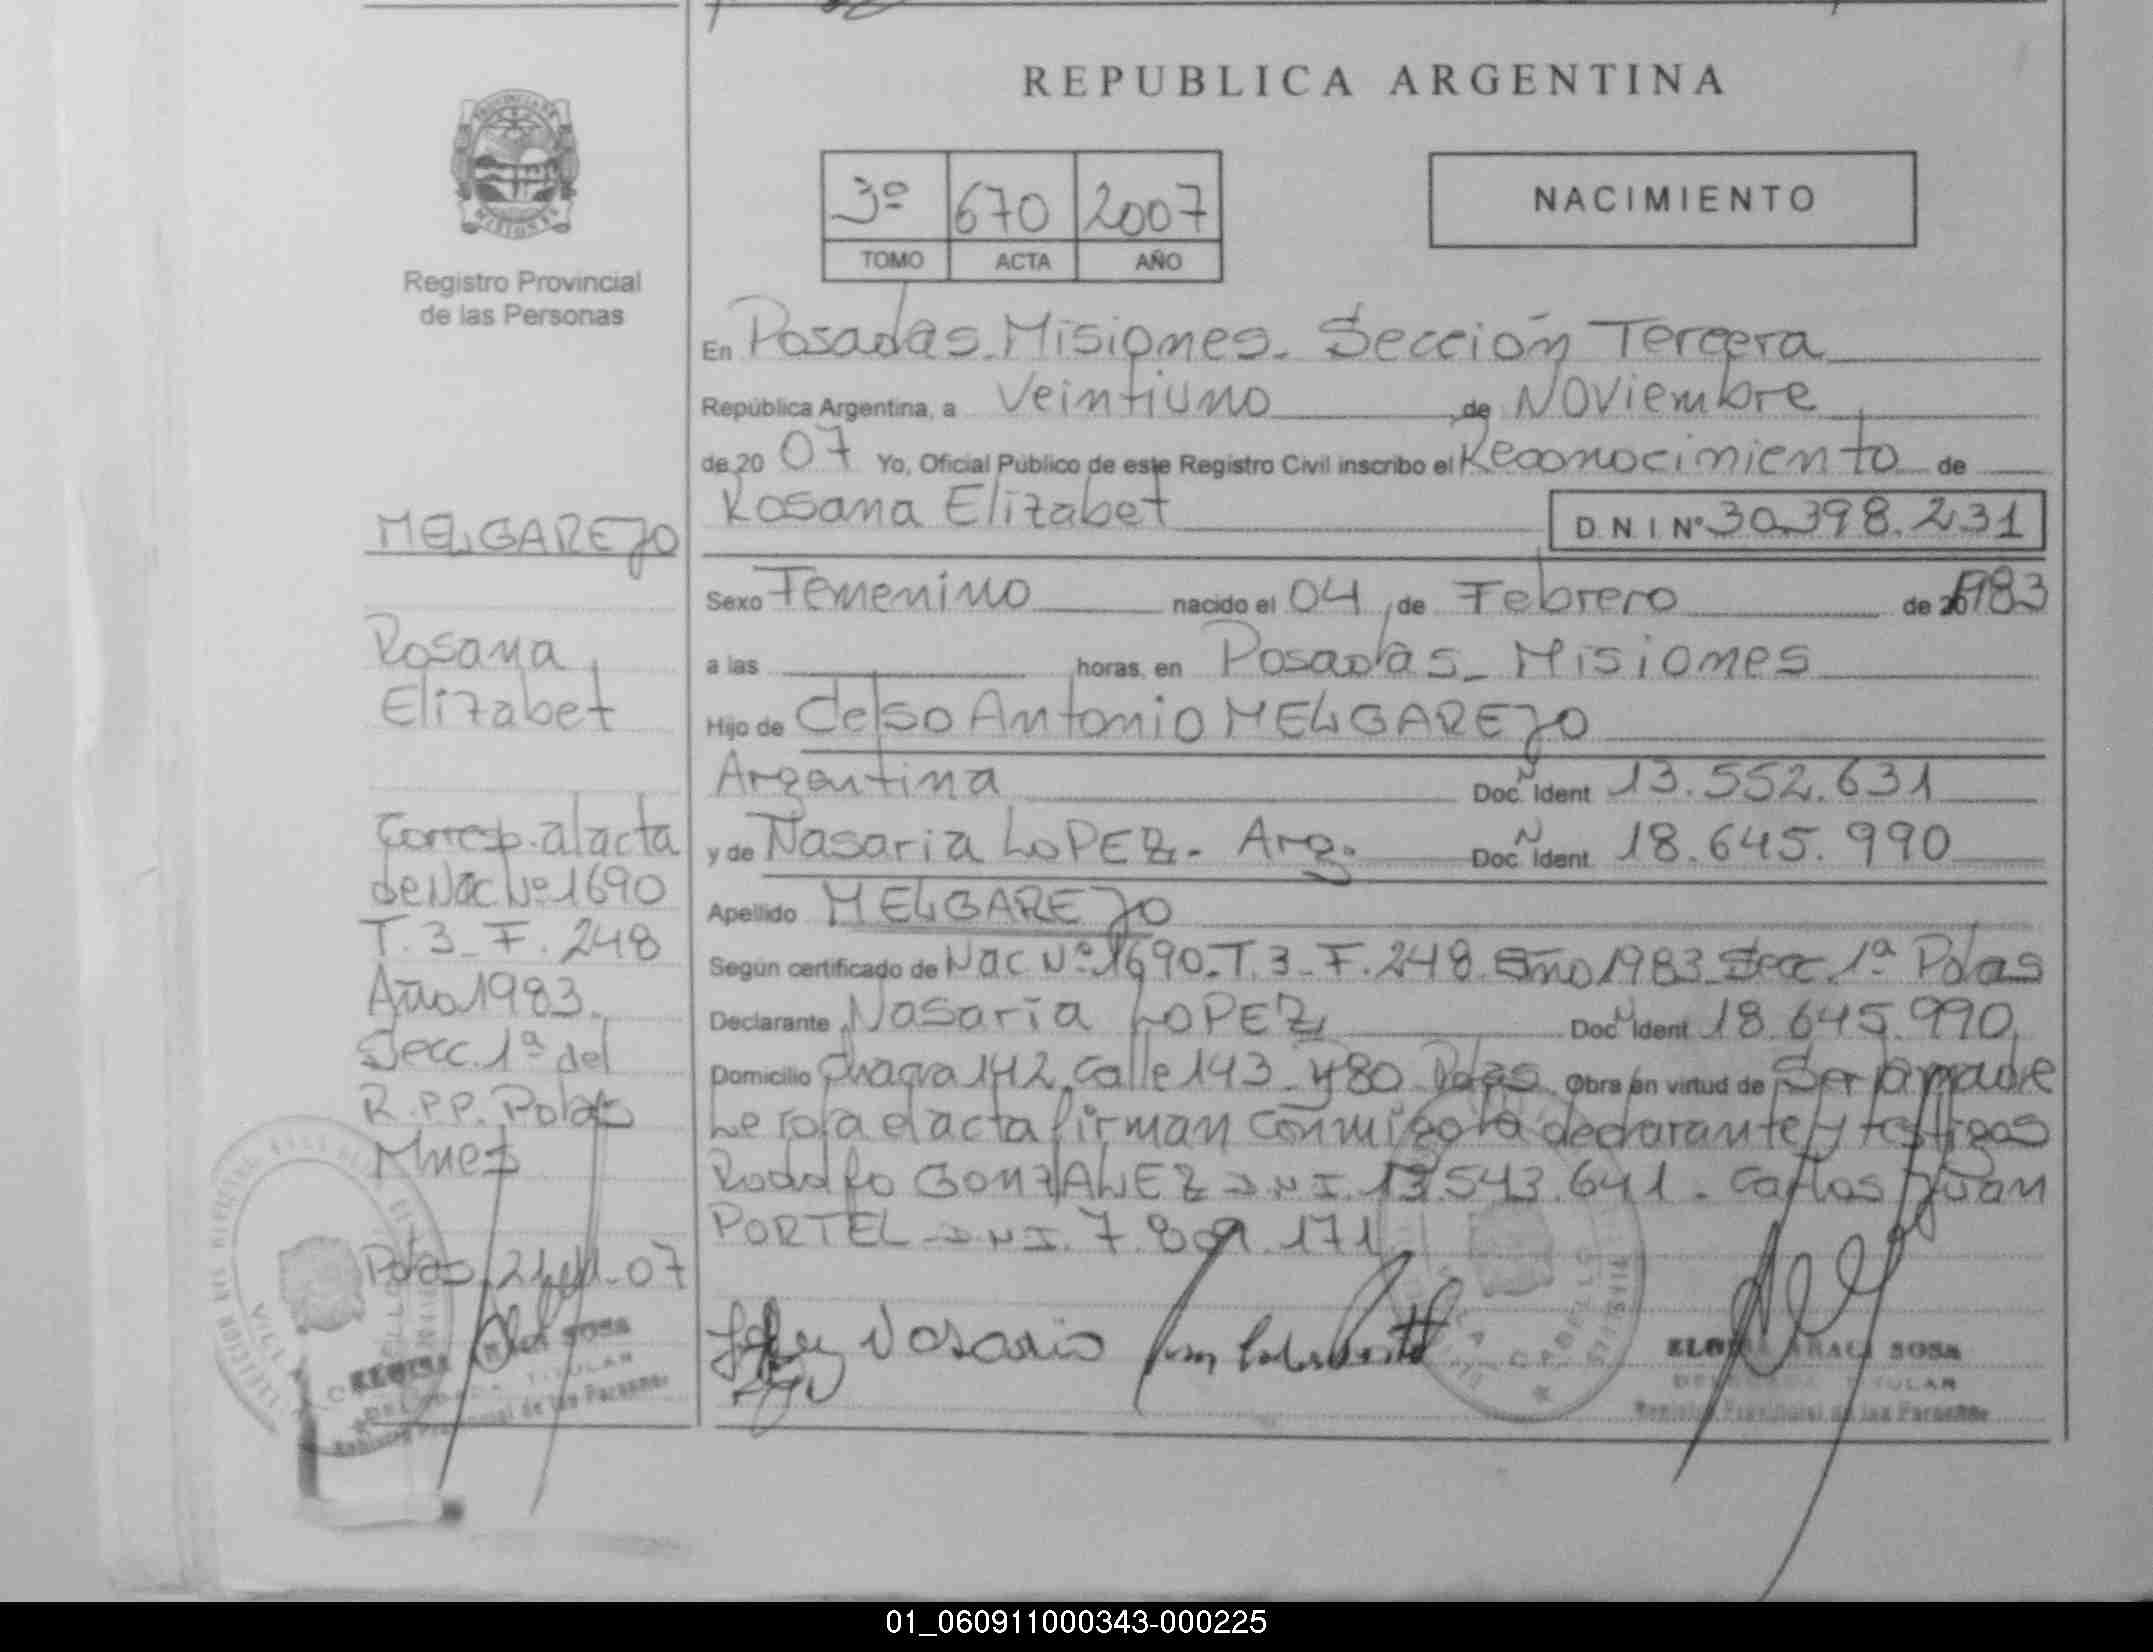 REPUBLICA ARGENTINA
3º 670 2007
TOMO ACTA AÑO
NACIMIENTO
Registro Provincial
de las Personas
MELGAREJO
Rosana
Elizabet
Corresp. al acta
de Nac Nº 1690
T. 3 - F. 248
Año 1983.
Secc. 1ª del
R.P.P. Pdas
Mnes
Pdas, 21-11-07
En Posadas - Misiones - Sección Tercera
República Argentina, a Veintiuno de Noviembre
de 20 07 Yo, Oficial Público de este Registro Civil inscribo el Reconocimiento de
Rosana Elizabet D.N.I Nº 30.398.231
Sexo Femenino nacido el 04 de Febrero de 1983
a las horas, en Posadas - Misiones
Hijo de Celso Antonio MELGAREJO
Argentina Doc. Ident 13.552.631
y de Nasaria LOPEZ - Arg. Doc. Ident 18.645.990
Apellido MELGAREJO
Según certificado de Nac Nº 1690 - T. 3 - F. 248 Año 1983 Secc. 1ª Pdas
Declarante Nasaria LOPEZ Doc Ident 18.645.990
Domicilio Chacra 142, Calle 143 y 80 Pdas Obra en virtud de Ser la madre
Leída el acta firman conmigo la declarante y testigos
Rodolfo GONZALEZ D.N.I. 13.543.641. Carlos Juan
PORTEL D.N.I. 7.809.171
SOSA
TITULAR
Provincial de las Personas
ARACI SOSA
TITULAR
Registro Provincial de las Personas
01_060911000343-000225